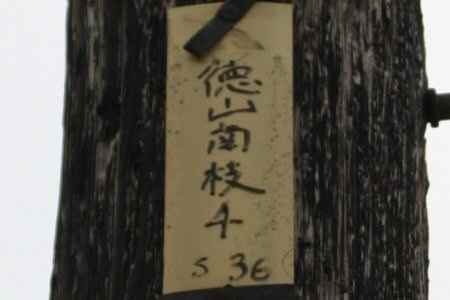 徳山南枝
4
S 36